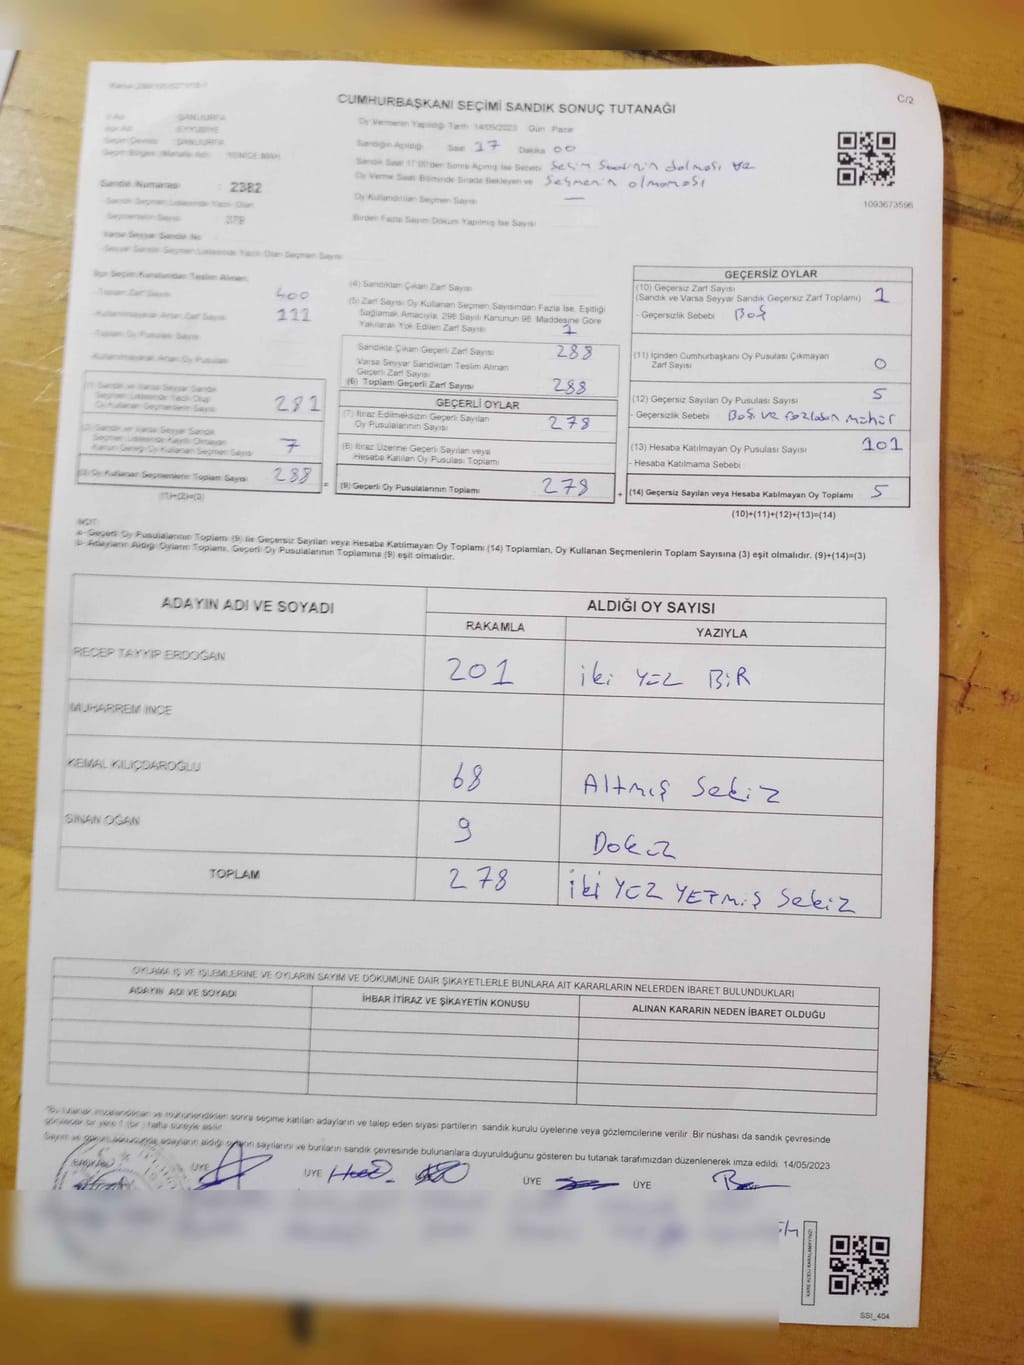 C/2
CUMHURBAŞKANI SEÇİMİ SANDIK SONUÇ TUTANAĞI
İl Adı : ŞANLIURFA
İlçe Adı : EYYÜBİYE
Seçim Çevresi : ŞANLIURFA
Seçim Bölgesi (Mahalle Adı) : YENİCE MAH
Sandık Numarası : 2382
Sandık Seçmen Listesinde Yazılı Olan
Seçmenlerin Sayısı 379
Varsa Seyyar Sandık No
Seyyar Sandık Seçmen Listesinde Yazılı Olan Seçmen Sayısı
Oy Vermenin Yapıldığı Tarih 14/05/2023 Gün Pazar
Sandığın Açıldığı Saat 17 Dakika 00
Sandık Saat 17:00'den Sonra Açılmış İse Sebebi Seçim Saatinin dolması ve
Oy Verme Saati Bitiminde Sırada Bekleyen ve Seçmenin olmaması
Oy Kullandırılan Seçmen Sayısı —
Birden Fazla Sayım Döküm Yapılmış İse Sayısı
1093673596
İlçe Seçim Kurulundan Teslim Alınan
Toplam Zarf Sayısı 400
Kullanılmayarak Artan Zarf Sayısı 111
Toplam Oy Pusulası Sayısı
Kullanılmayarak Artan Oy Pusulası
(1) Sandık ve Varsa Seyyar Sandık
Seçmen Listesinde Yazılı Olup
Oy Kullanan Seçmenlerin Sayısı 281
(2) Sandık ve Varsa Seyyar Sandık
Seçmen Listesinde Kayıtlı Olmayan
Kanun Gereği Oy Kullanan Seçmen Sayısı 7
(3) Oy Kullanan Seçmenlerin Toplam Sayısı 288
(1)+(2)=(3)
(4) Sandıktan Çıkan Zarf Sayısı
(5) Zarf Sayısı Oy Kullanan Seçmen Sayısından Fazla İse, Eşitliği
Sağlamak Amacıyla, 298 Sayılı Kanunun 98. Maddesine Göre
Yakılarak Yok Edilen Zarf Sayısı 1
Sandıkta Çıkan Geçerli Zarf Sayısı 288
Varsa Seyyar Sandıktan Teslim Alınan
Geçerli Zarf Sayısı
(6) Toplam Geçerli Zarf Sayısı 288
GEÇERLİ OYLAR
(7) İtiraz Edilmeksizin Geçerli Sayılan
Oy Pusulalarının Sayısı 278
(8) İtiraz Üzerine Geçerli Sayılan veya
Hesaba Katılan Oy Pusulası Toplamı
(9) Geçerli Oy Pusulalarının Toplamı 278
GEÇERSİZ OYLAR
(10) Geçersiz Zarf Sayısı
(Sandık ve Varsa Seyyar Sandık Geçersiz Zarf Toplamı) 1
- Geçersizlik Sebebi Boş
(11) İçinden Cumhurbaşkanı Oy Pusulası Çıkmayan
Zarf Sayısı 0
(12) Geçersiz Sayılan Oy Pusulası Sayısı 5
- Geçersizlik Sebebi Boş ve Fazladan Mühür
(13) Hesaba Katılmayan Oy Pusulası Sayısı 101
- Hesaba Katılmama Sebebi
(14) Geçersiz Sayılan veya Hesaba Katılmayan Oy Toplamı 5
(10)+(11)+(12)+(13)=(14)
NOT:
a- Geçerli Oy Pusulalarının Toplamı (9) ile Geçersiz Sayılan veya Hesaba Katılmayan Oy Toplamı (14) Toplamları, Oy Kullanan Seçmenlerin Toplam Sayısına (3) eşit olmalıdır. (9)+(14)=(3)
b- Adayların Aldığı Oyların Toplamı, Geçerli Oy Pusulalarının Toplamına (9) eşit olmalıdır.
ADAYIN ADI VE SOYADI
ALDIĞI OY SAYISI
RAKAMLA YAZIYLA
RECEP TAYYİP ERDOĞAN 201 iki yüz BİR
MUHARREM İNCE
KEMAL KILIÇDAROĞLU 68 Altmış Sekiz
SİNAN OĞAN 9 Dokuz
TOPLAM 278 iki YÜZ YETMİŞ Sekiz
OYLAMA İŞ VE İŞLEMLERİNE VE OYLARIN SAYIM VE DÖKÜMÜNE DAİR ŞİKAYETLERLE BUNLARA AİT KARARLARIN NELERDEN İBARET BULUNDUKLARI
ADAYIN ADI VE SOYADI İHBAR İTİRAZ VE ŞİKAYETİN KONUSU ALINAN KARARIN NEDEN İBARET OLDUĞU
*Bu tutanak imzalandıktan ve mühürlendikten sonra seçime katılan adayların ve talep eden siyasi partilerin sandık kurulu üyelerine veya gözlemcilerine verilir. Bir nüshası da sandık çevresinde
görülecek bir yere 1 (bir) hafta süreyle asılır.
Sayım ve döküm sonucunda adayların aldığı oyların sayılarını ve bunların sandık çevresinde bulunanlara duyurulduğunu gösteren bu tutanak tarafımızdan düzenlenerek imza edildi. 14/05/2023
BAŞKAN ÜYE ÜYE ÜYE ÜYE
KARE KODU KARALAMAYINIZ!
SSI_404